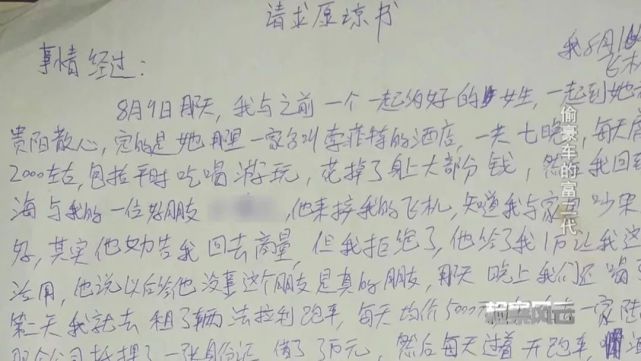 请求原谅书
我8月1
飞机
事情经过：
8月9日那天，我与之前一个一起约好的女生，一起到她
贵阳散心，定的是她那里一家名叫索菲特的酒店，一共七晚，每天
2000左右，包括平时吃喝游玩，花掉了身上大部份钱，然后我回
海与我的一位好朋友，他来接我的飞机，知道我与家里吵架
好，其实他劝告我回去商量，但我拒绝了，他给了我1万让我
活用，他说以后我他没事这个朋友是真的朋友，那天晚上我们还喝了
第二天我就去租了辆法拉利跑车，每天均价5000 一家
一张身份证，借了3万元，然后每天过着开跑车
偷豪车的富二代
视察风云